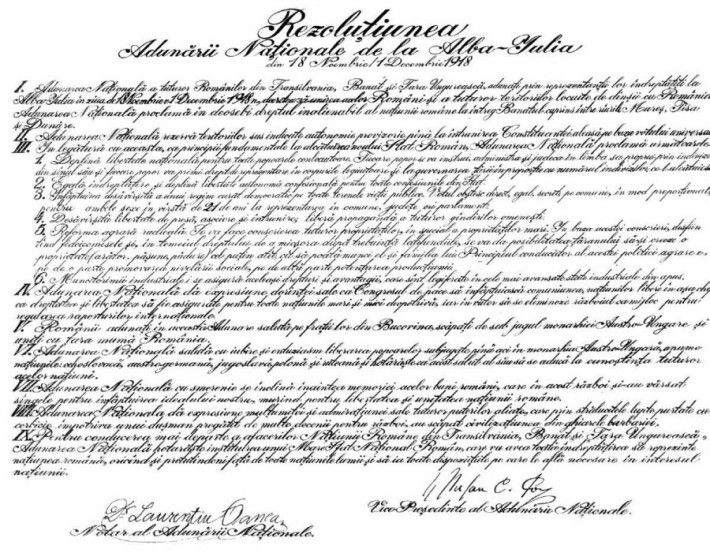 Rezoluțiunea
Adunării Naționale de la Alba-Iulia
din 18 Noembrie/1 Decembrie 1918
I. Adunarea Națională a tuturor Românilor din Transilvania, Banat și Țara Ungurească, adunați prin reprezentanții lor îndreptățiți la
Alba-Iulia în ziua de 18 Noembrie/1 Decembrie 1918, decretează unirea acelor Români și a tuturor teritoriilor locuite de dînșii cu România.
Adunarea Națională proclamă în deosebi dreptul inalienabil al națiunii române la întreg Banatul cuprins între rîurile Mureș, Tisa
și Dunăre.
II. Adunarea Națională rezervă teritoriilor sus indicate autonomie provizorie pînă la întrunirea Constituantei aleasă pe baza votului universal.
III. În legătură cu aceasta, ca principii fundamentale la alcătuirea noului Stat Român, Adunarea Națională proclamă următoarele:
1. Deplină libertate națională pentru toate popoarele conlocuitoare. Fiecare popor se va instrui, administra și judeca în limba sa proprie prin indivizi
din sînul său și fiecare popor va primi drept de reprezentare în corpurile legiuitoare și la guvernarea țării în proporție cu numărul indivizilor ce-l alcătuiesc.
2. Egală îndreptățire și deplină libertate autonomă confesională pentru toate confesiunile din Stat.
3. Înfăptuirea desăvîrșită a unui regim curat democratic pe toate terenele vieții publice. Votul obștesc, direct, egal, secret, pe comune, în mod proporțional,
pentru ambele sexe în vîrstă de 21 de ani la reprezentarea în comune, județe ori parlament.
4. Desăvîrșită libertate de presă, asociere și întrunire, liberă propagandă a tuturor gîndirilor omenești.
5. Reforma agrară radicală. Se va face conscrierea tuturor proprietăților, în special a proprietăților mari. În baza acestei conscrieri, desființînd
fideicomisele și, în temeiul dreptului de a micșora după trebuință latifundiile, se va da posibilitatea țăranului să-și creeze o
proprietate (arător, pășune, pădure) cel puțin atît cît să poată munci el și familia lui. Principiul conducător al acestei politici agrare e
pe de o parte promovarea nivelării sociale, pe de altă parte potențarea producțiunii.
6. Muncitorimei industriale i se asigură aceleași drepturi și avantagii, care sînt legiferate în cele mai avansate state industriale din apus.
IV. Adunarea Națională dă expresiune dorinței sale ca Congresul de pace să înfăptuiască comuniunea națiunilor libere în așa chip,
ca dreptatea și libertatea să fie asigurate pentru toate națiunile mari și mici deopotrivă, iar în viitor să se elimineze războiul ca mijloc pentru
regularea raporturilor internaționale.
V. Românii adunați în această Adunare salută pe frații lor din Bucovina, scăpați de sub jugul monarhiei Austro-Ungare și
uniți cu țara mamă România.
VI. Adunarea Națională salută cu iubire și entuziasm liberarea popoarelor subjugate pînă aci în monarhia Austro-Ungară, anume
națiunile: cehoslovacă, austro-germană, jugoslavă, polonă și ruteană și hotărăște ca acest salut al său să se aducă la cunoștința tuturor
acelor națiuni.
VII. Adunarea Națională cu smerenie se închină înaintea memoriei acelor bravi români, care în acest război și-au vărsat
sîngele pentru înfăptuirea idealului nostru, murind pentru libertatea și unitatea națiunii române.
VIII. Adunarea Națională dă expresiune mulțumitei și admirațiunei sale tuturor puterilor aliate, care prin strălucitele lupte purtate cu
cerbicie împotriva unui dușman pregătit de multe decenii pentru război, au scăpat civilizațiunea din ghiarele barbariei.
IX. Pentru conducerea mai departe a afacerilor Națiunii Române din Transilvania, Banat și Țara Ungurească,
Adunarea Națională hotărăște instituirea unui Mare Sfat Național Român, care va avea toată îndreptățirea să reprezinte
națiunea română, oricînd și pretutindeni față de toate națiunile lumii și să ia toate dispozițiile pe care le află necesare în interesul
națiunii.
Dr. Laurențiu Oanea
Notar al Adunării Naționale.
Ștefan C. Pop
Vice-Președinte al Adunării Naționale.